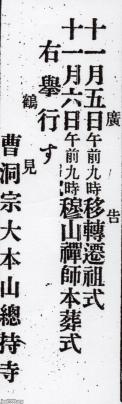 廣告
十一月五日午前九時移轉遷祖式
十一月六日午前九時穆山禪師本葬式
右擧行す
鶴見
曹洞宗大本山總持寺